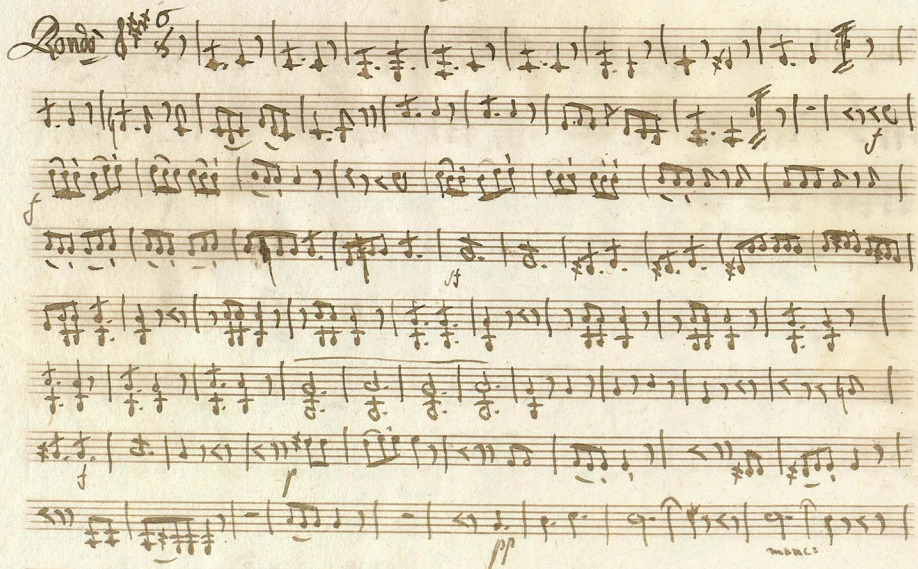 Rondò 6 8
f
f
sf
f p
pp manc: